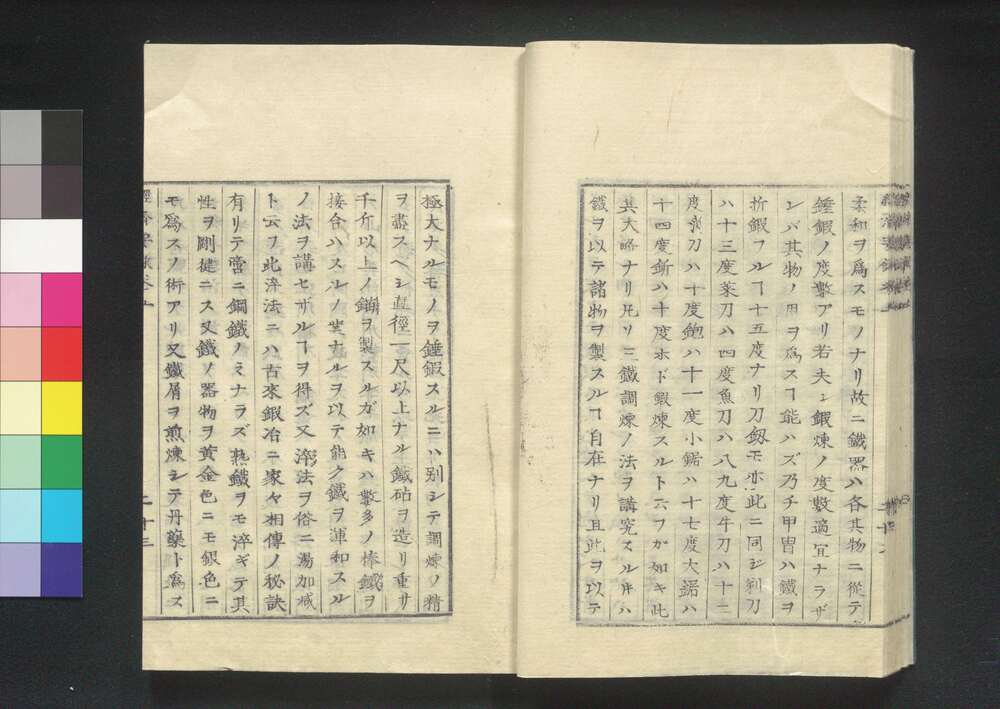 柔和ヲ爲スモノナリ故ニ鐵器ハ各其物ニ從テ
錘鍜ノ度數アリ若夫レ鍜煉ノ度數適宜ナラザ
レバ其物ノ用ヲ爲スヿ能ハズ乃チ甲冑ハ鐵ヲ
折鍜フルヿ十五度ナリ刀劔モ亦此ニ同シ剃刀
ハ十三度菜刀ハ四度魚刀ハ八九度牛刀ハ十二
度 刀ハ十度鉋ハ十一度小鋸ハ十七度大鋸ハ
十四度釿ハ十度ホド鍜煉スルト云フガ如キ此
其大略ナリ凡ソ三鐵調煉ノ法ヲ講究スル片ハ
鐵ヲ以テ諸物ヲ製スルヿ自在ナリ且此ヲ以テ
極大ナルモノヲ錘鍜スルニハ別シテ調煉ノ精
ヲ盡スヘシ直徑一尺以上ナル鐵砧ヲ造リ重サ
千斤以上ノ錨ヲ製スルガ如キハ數多ノ棒鐵ヲ
接合ハスルノ業ナルヲ以テ能ク鐵ヲ渾和スル
ノ法ヲ講セザルヿヲ得ズ又淬法ヲ俗ニ湯加减
ト云フ此淬法ニハ古來鍜冶ニ家々相傳ノ秘訣
有リテ啻ニ鋼鐵ノミナラズ熟鐵ヲモ淬ギテ其
性ヲ剛健ニス又鐵ノ器物ヲ黄金色ニモ銀色ニ
モ爲スノ術アリ又鐵屑ヲ煎煉シテ丹藥ト爲ス
二十三